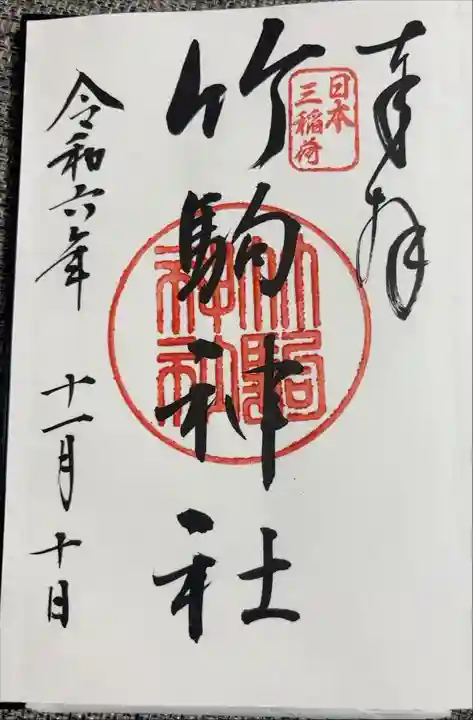 奉拝
日本
三稲荷
竹駒神社
竹駒
神社
令和六年
十一月十日